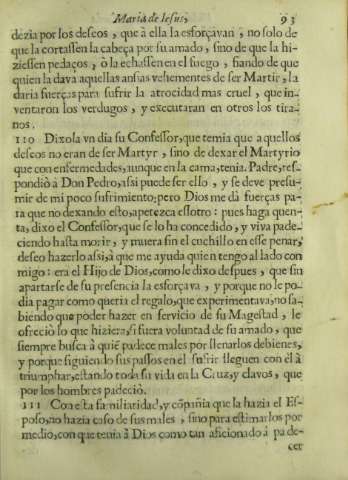 Maria de Iesus, 93
dezia por los deseos, que à ella la esforçavan, no solo de
que la cortassen la cabeça por su amado, sino de que la hi-
ziessen pedaços, ò la echassen en el fuego, fiando de que
quien la dava aquellas ansias vehementes de ser Martir, la
daria fuerças para sufrir la atrocidad mas cruel, que in-
ventaron los verdugos, y executaran en otros los tira-
nos.
110 Dixola vn dia su Confessor, que temia que aquellos
deseos no eran de ser Martyr, sino de dexar el Martyrio
que con enfermedades, aunque en la cama, tenia. Padre, res-
pondiò à Don Pedro, assi puede ser esso, y se deve presu-
mir de mi poco sufrimiento; pero Dios me dà fuerças pa-
ra que no dexando esto, apetezca essotro: pues haga quen-
ta, dixo el Confessor, que se lo ha concedido, y viva pade-
ciendo hasta morir, y muera sin el cuchillo en esse penar,
deseo hazerlo assi, à que me ayuda quien tengo al lado con
migo: era el Hijo de Dios, como le dixo despues, que sin
apartarse de su presencia la esforçava, y porque no le po-
dia pagar como queria el regalo, que experimentava, no sa-
biendo que poder hazer en servicio de su Magestad, le
ofreciò lo que hiziera, si fuera voluntad de su amado, que
siempre busca à quiē padece males por llenarlos de bienes,
y porque siguiendo sus passos en el sufrir lleguen con èl à
triumphar, estando toda su vida en la Cruz, y clavos, que
por los hombres padeciò.
111 Con esta familiaridad, y cōpañia que la hazia el Es-
poso, no hazia caso de sus males, sino para estimarlos por
medio, con que tenia à Dios como tan aficionado à pade-
cer